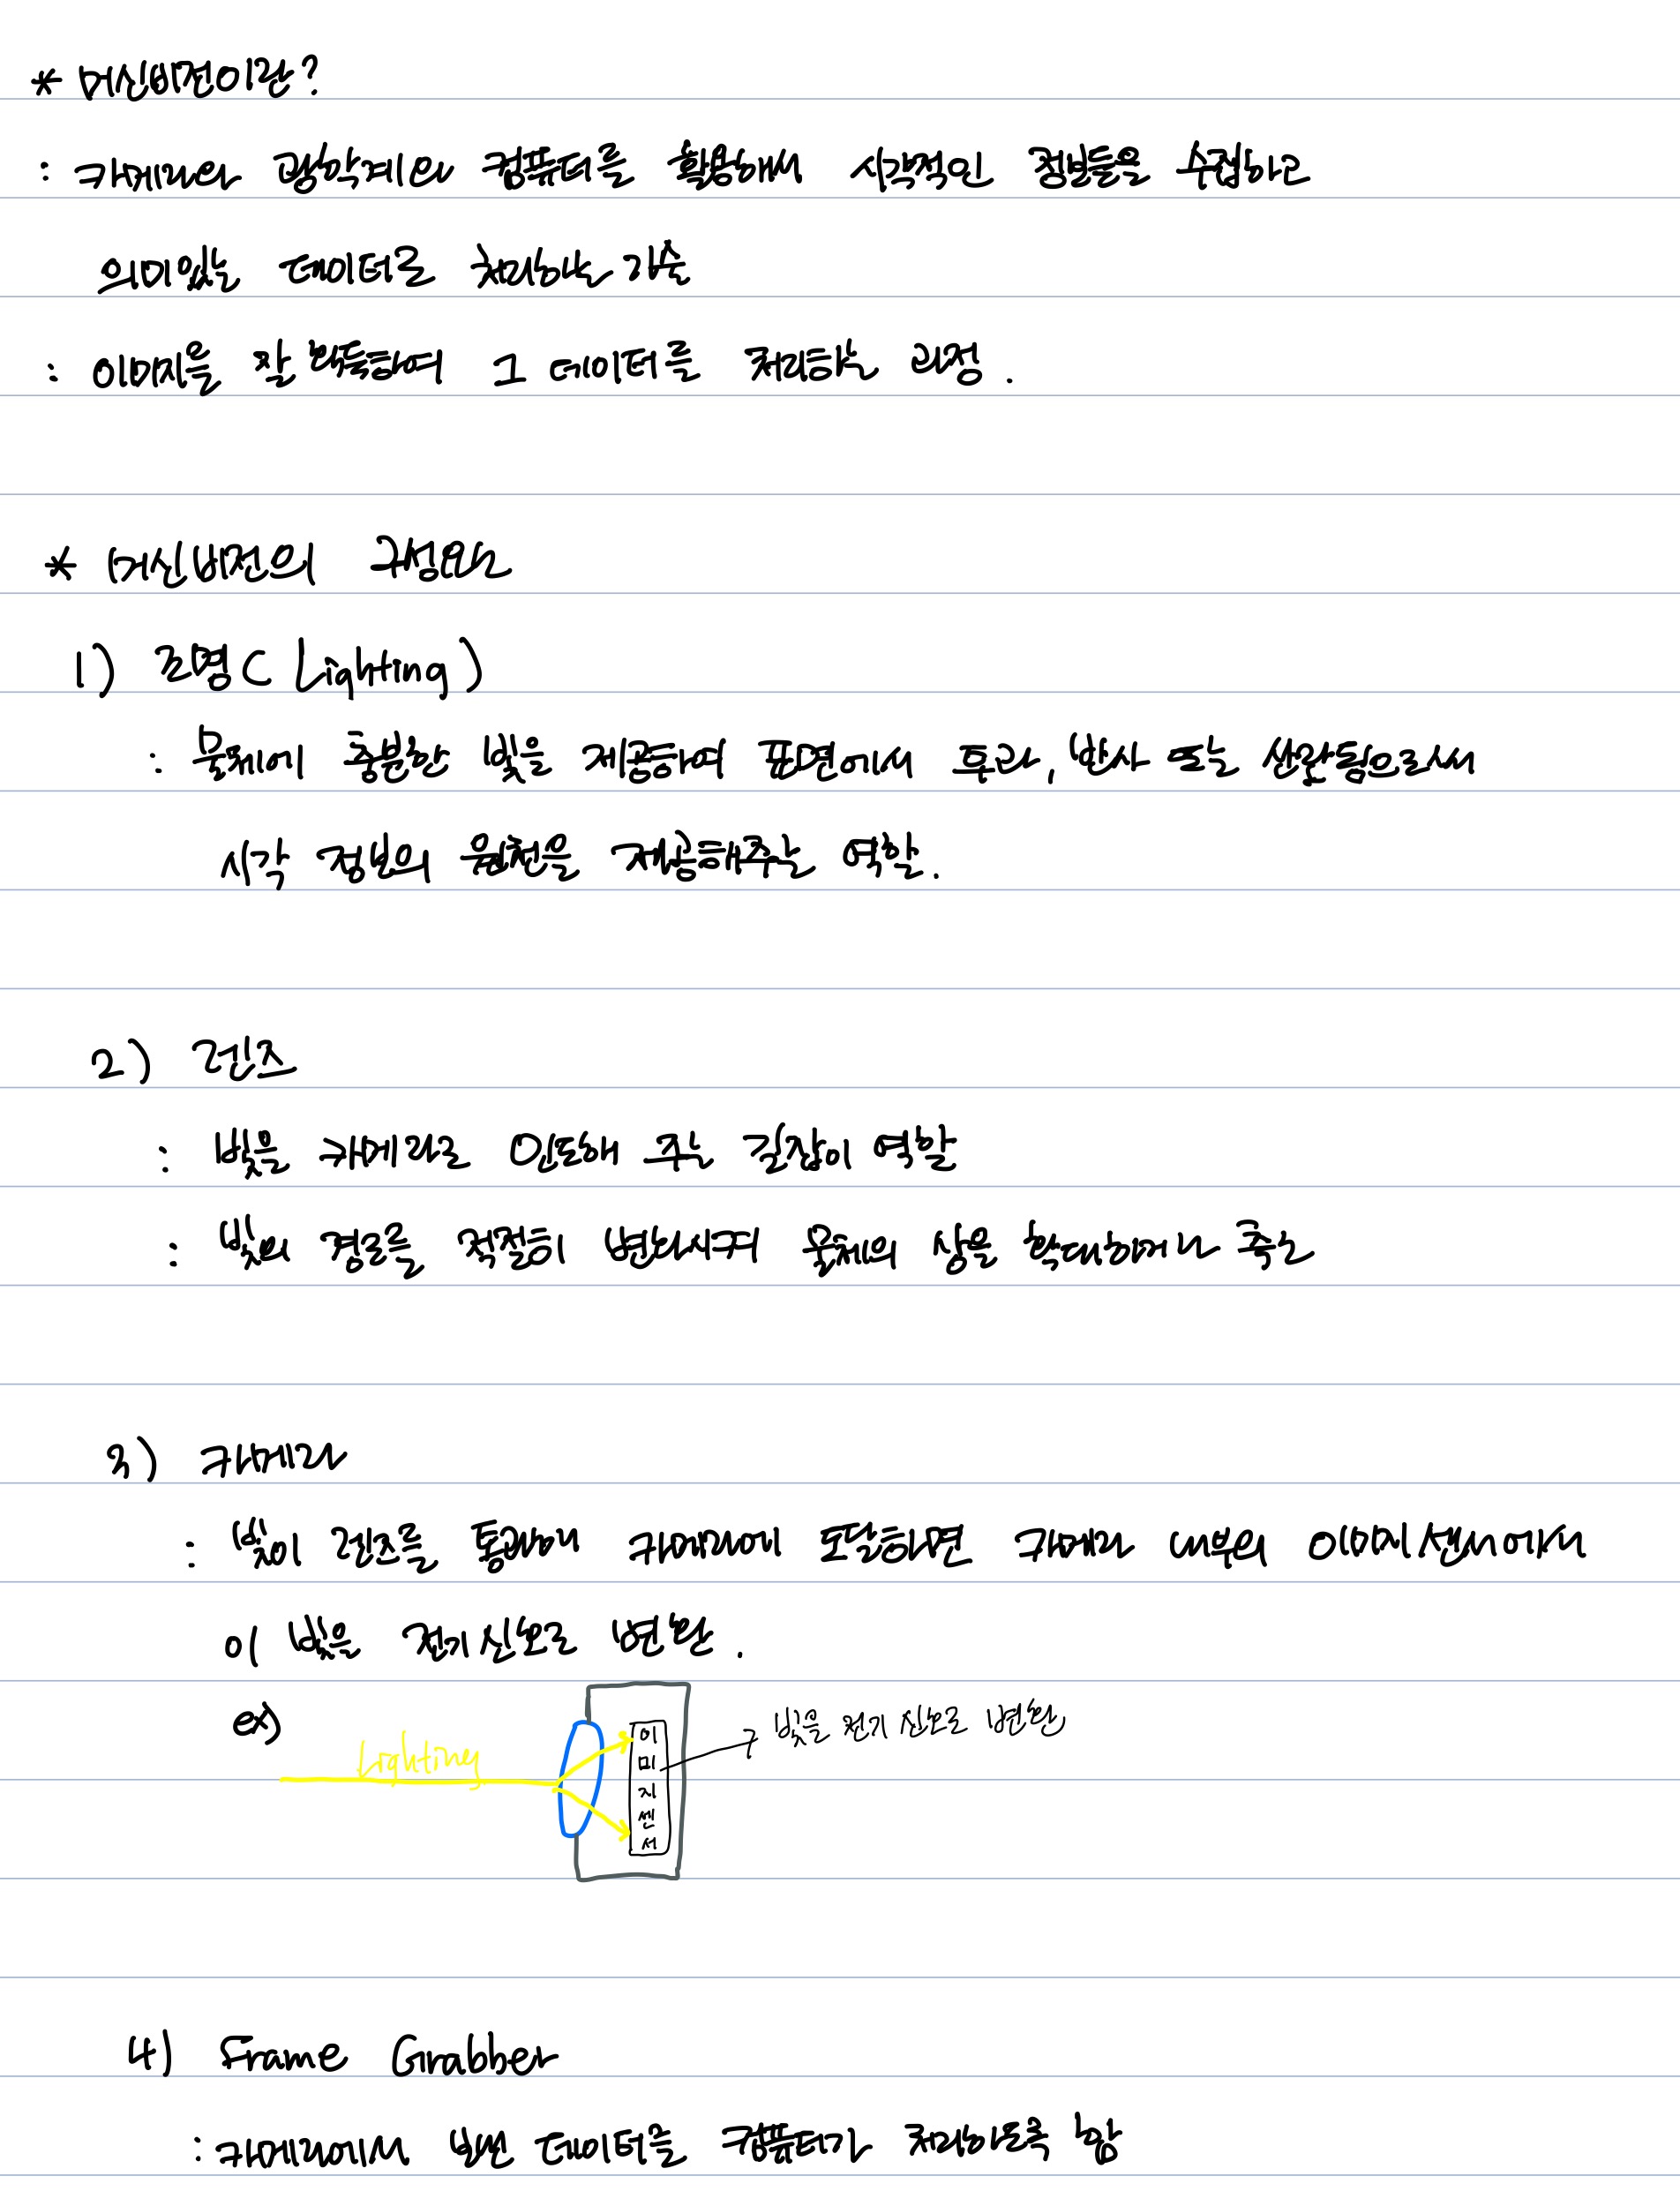 * 머신비전이란?
: 카메라와 광학계와 컴퓨터를 활용해서 시각적인 정보들을 수집하고
의미있는 데이터로 처리하는 기술
: 이미지를 잘 획득하여 그 데이터를 처리하는 과정.
* 머신비전의 구성요소
1) 조명(Lighting)
: 물체에 충분한 빛을 제공하여 표면에서 투과, 반사 또는 산란됨으로써
시각 정보의 원천을 제공해주는 역할.
2) 렌즈
: 빛을 카메라로 인도해 주는 길잡이 역할
: 빛의 경로를 적절히 변화시켜 물체의 상을 확대하거나 축소
3) 카메라
: 빛이 렌즈를 통과해 카메라에 도달하면 카메라 내부의 이미지 센서에서
이 빛을 전기신호로 변환.
ex)
Lighting
이미지센서
빛을 전기 신호로 변환
4) Frame Grabber
: 카메라에서 보낸 데이터를 컴퓨터가 처리하도록 함